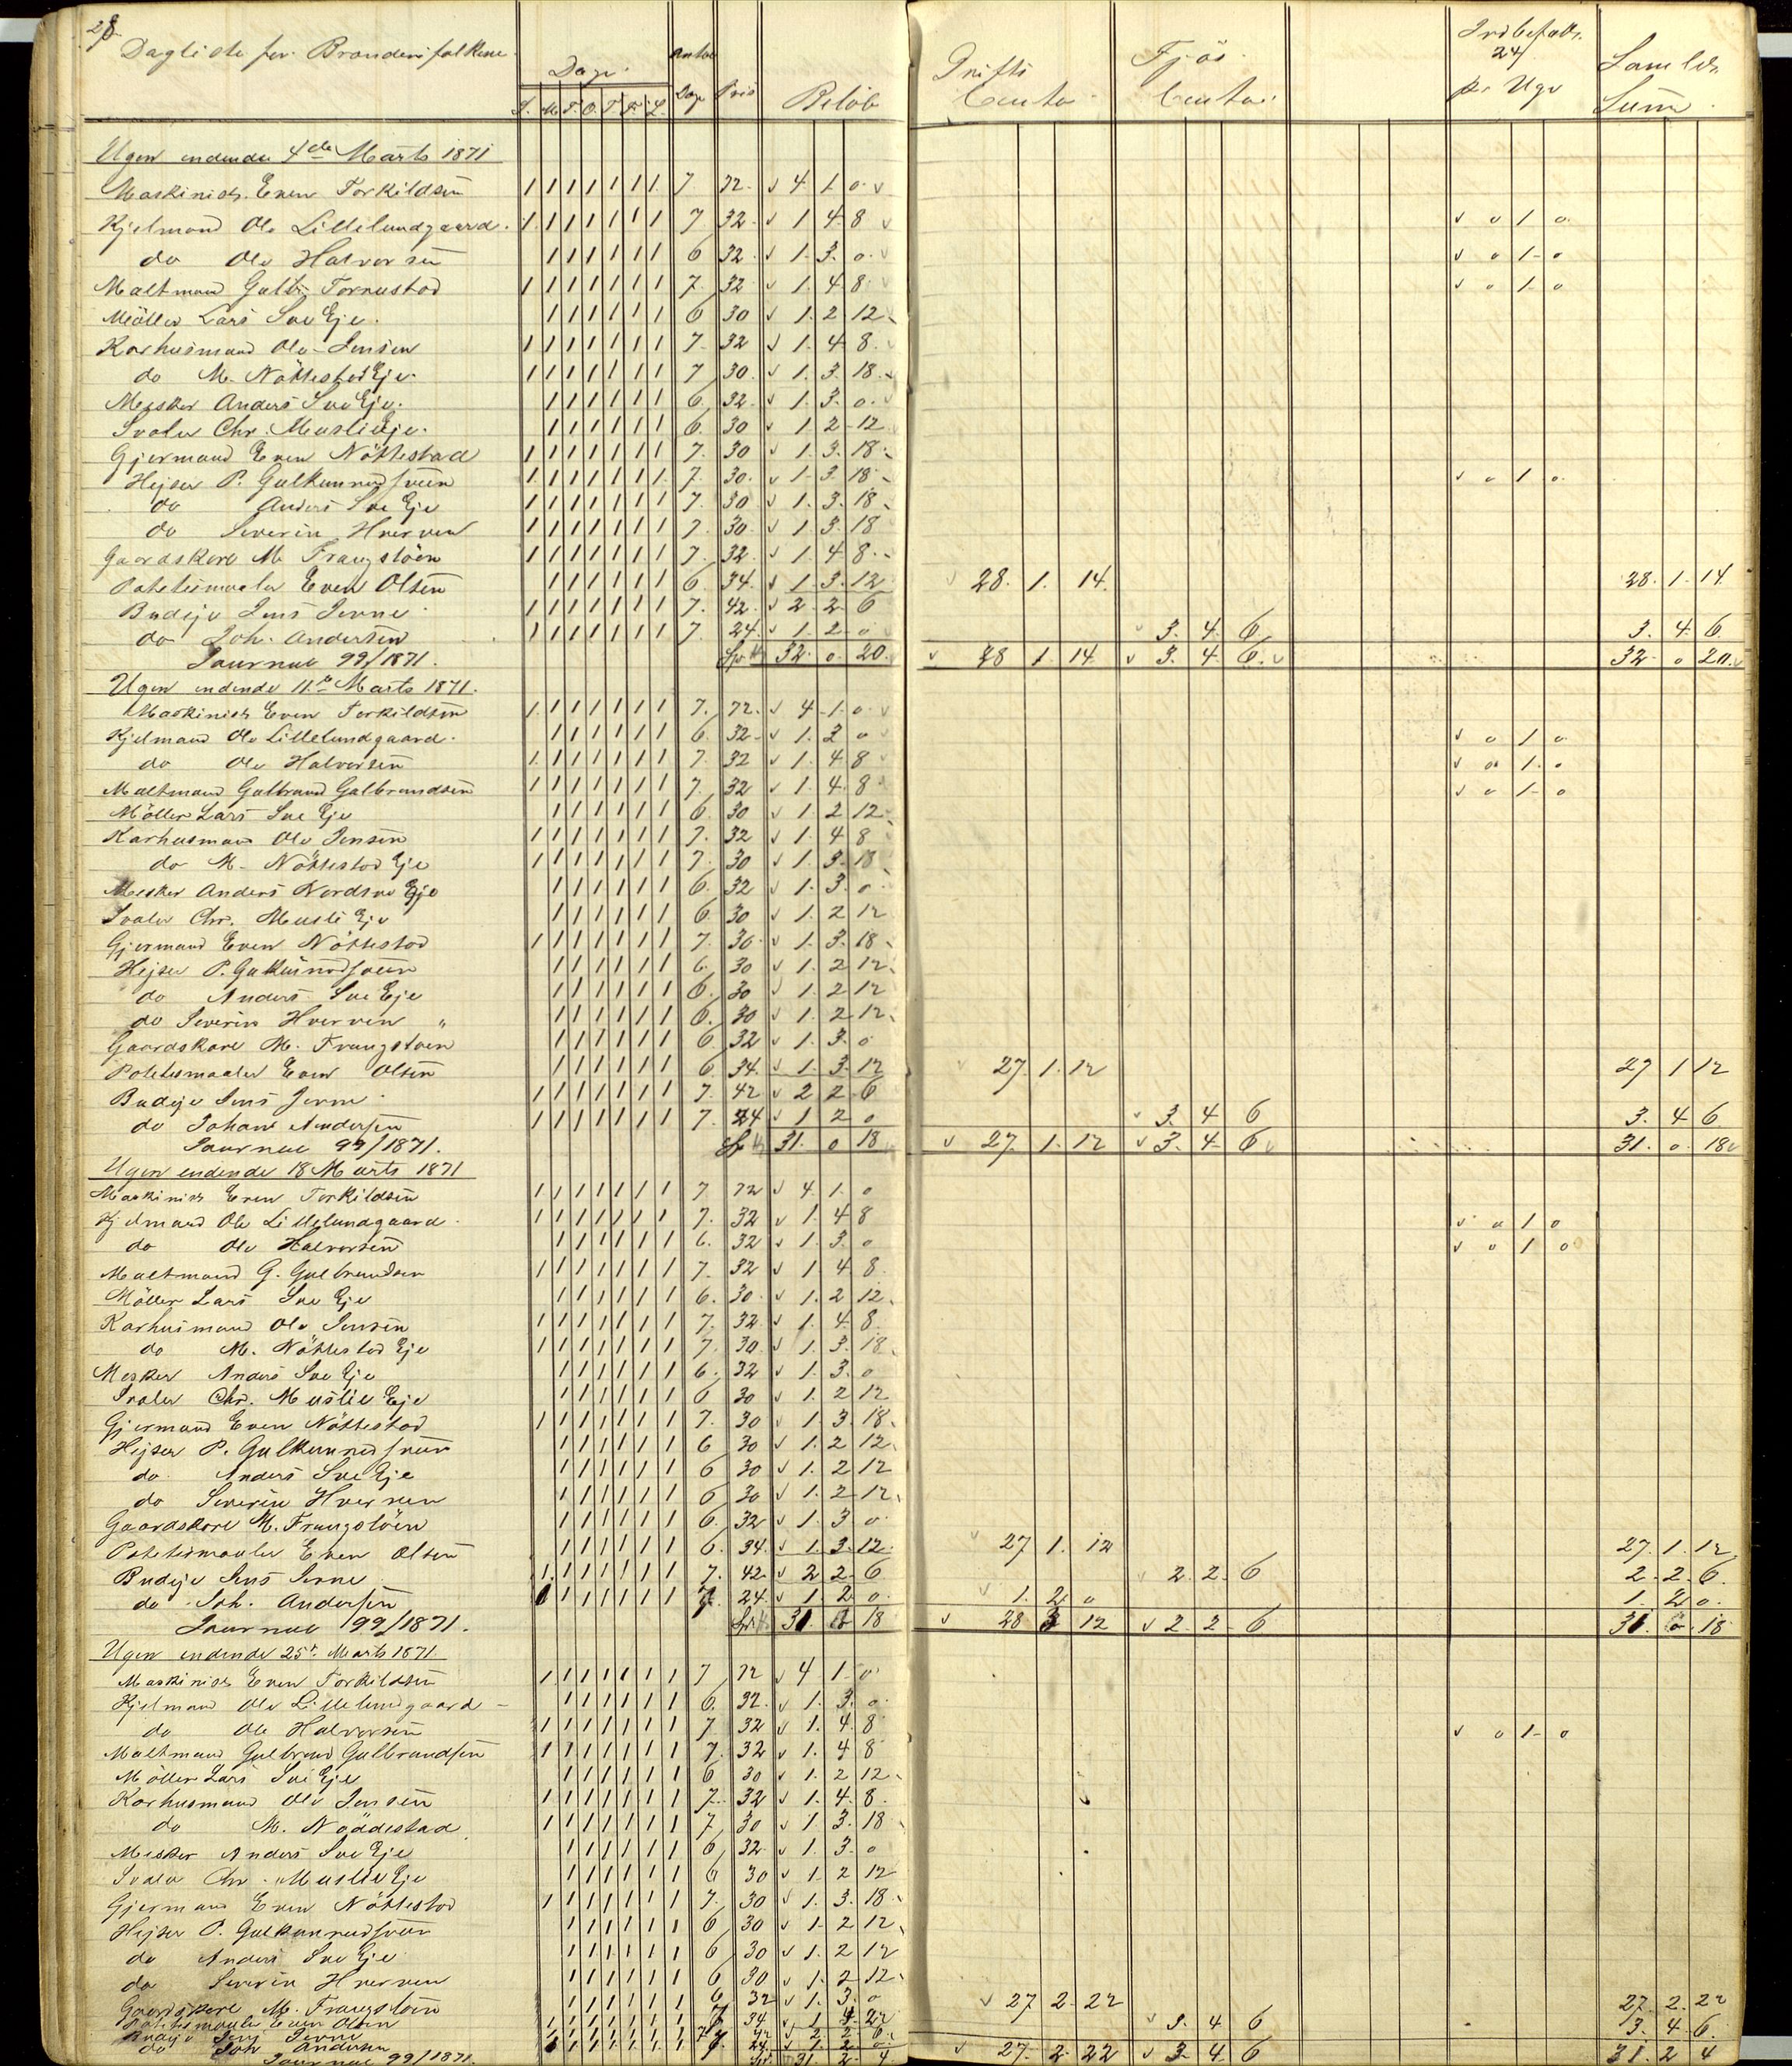 28. Dagliste for Brænderifolkene. Dage. Antal Dage Pris Beløb Drifts Conto Fjös Conto. Indbetalt 24/ pr Uge Samlet Summa
S. M. T. O. T. F. L.
Ugen endende 4de Marts 1871
Maskinist Even Torkildsen 1 1 1 1 1 1 1 7 72 4 1 0
Kjelmand Ole Lillelundgaard 1 1 1 1 1 1 1 7 32 1 4 8 0 1 0
do Ole Halvorsen 1 1 1 1 1 1 6 32 1 3 0 0 1 0
Maltmand Gulb. 1 1 1 1 1 1 1 7 32 1 4 8 0 1 0
Möller Lars Sve Eje 1 1 1 1 1 1 6 30 1 2 12
Karhusmand Ole Jensen 1 1 1 1 1 1 1 7 32 1 4 8
do M. Nöttestad Eje 1 1 1 1 1 1 1 7 30 1 3 18
Mesker Anders Sve Eje 1 1 1 1 1 1 6 32 1 3 0
Svaler Chr. Muslie Eje 1 1 1 1 1 1 6 30 1 2 12
Gjermand Even Nöttestad 1 1 1 1 1 1 1 7 30 1 3 18
Hejser P. 1 1 1 1 1 1 1 7 30 1 3 18 0 1 0
do Anders Sve Eje 1 1 1 1 1 1 1 7 30 1 3 18
do Severin Hverven 1 1 1 1 1 1 1 7 30 1 3 18
Gaardskarl M. Frangstöen 1 1 1 1 1 1 1 7 32 1 4 8
Potetesmaaler Even Olsen 1 1 1 1 1 1 6 34 1 3 12 28 1 14 28 1 14
Budeje Jens Jerne 1 1 1 1 1 1 1 7 42 2 2 6
do Joh. Andersen 1 1 1 1 1 1 1 7 24 1 2 0 3 4 6 3 4 6
Journal 99/1871. 32 0 20 28 1 14 3 4 6 32 0 20
Ugen endende 11te Marts 1871.
Maskinist Even Torkildsen 1 1 1 1 1 1 1 7 72 4 1 0
Kjelmand Ole Lillelundgaard 1 1 1 1 1 1 6 32 1 3 0 0 1 0
do Ole Halvorsen 1 1 1 1 1 1 1 7 32 1 4 8 0 1 0
Maltmand Gulbrand Gulbrandsen 1 1 1 1 1 1 1 7 32 1 4 8 0 1 0
Möller Lars Sve Eje 1 1 1 1 1 1 6 30 1 2 12
Karhusmand Ole Jensen 1 1 1 1 1 1 1 7 32 1 4 8
do M. Nöttestad Eje 1 1 1 1 1 1 1 7 30 1 3 18
Mesker Anders Nordsve Eje 1 1 1 1 1 1 6 32 1 3 0
Svaler Chr. Musli Eje 1 1 1 1 1 1 6 30 1 2 12
Gjermand Even Nöttestad 1 1 1 1 1 1 1 7 30 1 3 18
Hejser P. 1 1 1 1 1 1 6 30 1 2 12
do Anders Sve Eje 1 1 1 1 1 1 6 30 1 2 12
do Severin Hverven „ 1 1 1 1 1 1 6 30 1 2 12
Gaardskarl M. Frangstöen 1 1 1 1 1 1 6 32 1 3 0
Potetesmaaler Even Olsen 1 1 1 1 1 1 6 34 1 3 12 27 1 12 27 1 12
Budeje Jens Jerne 1 1 1 1 1 1 1 7 42 2 2 6
do Johans Andersen 1 1 1 1 1 1 1 7 24 1 2 0 3 4 6 3 4 6
Journal 99/1871. 31 0 18 27 1 12 3 4 6 31 0 18
Ugen endende 18 Marts 1871
Maskinist Even Torkildsen 1 1 1 1 1 1 1 7 72 4 1 0
Kjelmand Ole Lillelundgaard 1 1 1 1 1 1 1 7 32 1 4 8 0 1 0
do Ole Halvorsen 1 1 1 1 1 1 6 32 1 3 0 0 1 0
Maltmand G. Gulbrandsen 1 1 1 1 1 1 1 7 32 1 4 8
Möller Lars Sve Eje 1 1 1 1 1 1 6 30 1 2 12
Karhusmand Ole Jensen 1 1 1 1 1 1 1 7 32 1 4 8
do M. Nöttestad Eje 1 1 1 1 1 1 1 7 30 1 3 18
Mesker Anders Sve Eje 1 1 1 1 1 1 6 32 1 3 0
Svaler Chr. Muslie Eje 1 1 1 1 1 1 6 30 1 2 12
Gjermand Even Nöttestad 1 1 1 1 1 1 1 7 30 1 3 18
Hejser P. 1 1 1 1 1 1 6 30 1 2 12
do Anders Sve Eje 1 1 1 1 1 1 6 30 1 2 12
do Severin Hverven 1 1 1 1 1 1 6 30 1 2 12
Gaardskarl M. Frangstöen 1 1 1 1 1 1 6 32 1 3 0
Potetesmaaler Even Olsen 1 1 1 1 1 1 6 34 1 3 12 27 1 12 27 1 12
Budeje Jens Jerne 1 1 1 1 1 1 1 7 42 2 2 6 2 2 6 2 2 6
do Joh. Andersen 1 1 1 1 1 1 7 24 1 2 0 1 2 0 1 2 0
Journal 99/1871. 31 0 18 28 3 12 2 2 6 31 0 18
Ugen endende 25t Marts 1871
Maskinist Even Torkildsen 1 1 1 1 1 1 1 7 72 4 1 0
Kjelmand Ole Lillelundgaard 1 1 1 1 1 1 6 32 1 3 0
do Ole Halvorsen 1 1 1 1 1 1 1 7 32 1 4 8 0 1 0
Maltmand Gulbrand Gulbrandsen 1 1 1 1 1 1 1 7 32 1 4 8
Möller Lars Sve Eje 1 1 1 1 1 1 6 30 1 2 12
Karhusmand Ole Jensen 1 1 1 1 1 1 1 7 32 1 4 8
do M. Nöddestad 1 1 1 1 1 1 1 7 30 1 3 18
Mesker Anders Sve Eje 1 1 1 1 1 1 6 32 1 3 0
Svaler Chr. Muslie Eje 1 1 1 1 1 1 6 30 1 2 12
Gjermand Even Nöttestad 1 1 1 1 1 1 1 7 30 1 3 18
Hejser P. 1 1 1 1 1 1 6 30 1 2 12
do Anders Sve Eje 1 1 1 1 1 1 6 30 1 2 12
do Severin Hverven 1 1 1 1 1 1 6 30 1 2 12
Gaardskarl M. Frangstöen 1 1 1 1 1 1 6 32 1 3 0 27 2 22 27 2 22
Potetesmaaler Even Olsen 1 1 1 1 1 1 1 7 34 1 4 22 3 4 6 3 4 6
Budeje Jens Jerne 1 1 1 1 1 1 1 7 42 2 2 6
do Joh Andersen 1 1 1 1 1 1 7 24 1 2 0
Journal 99/1871. 31 2 4 27 2 22 3 4 6 31 2 4